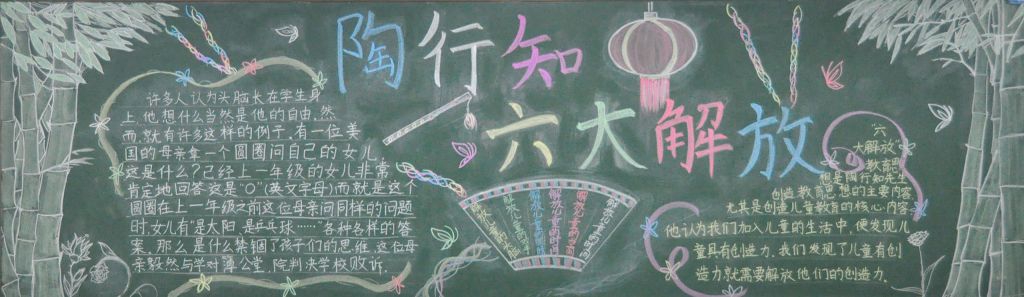 陶行知
六大解放
许多人认为头脑长在学生身
上,他想什么当然是他的自由.然
而,就有许多这样的例子.有一位美
国的母亲拿一个圆圈问自己的女儿
这是什么?已经上一年级的女儿非常
肯定地回答这是"O"(英文字母)而就是这个
圆圈在上一年级之前这位母亲问同样的问题
时,女儿有是太阳.是乒乓球……各种各样的答
案.那么是什么禁锢了孩子们的思维.这位母
亲毅然与学对薄公堂.院判决学校败诉.
"六
大解放"
教育观
也是陶行知先生
创造教育思想的主要内容
尤其是创造儿童教育的核心内容
他认为我们加入儿童的生活中,便发现儿
童具有创造力.我们发现了儿童有创
造力就需要解放他们的创造力.